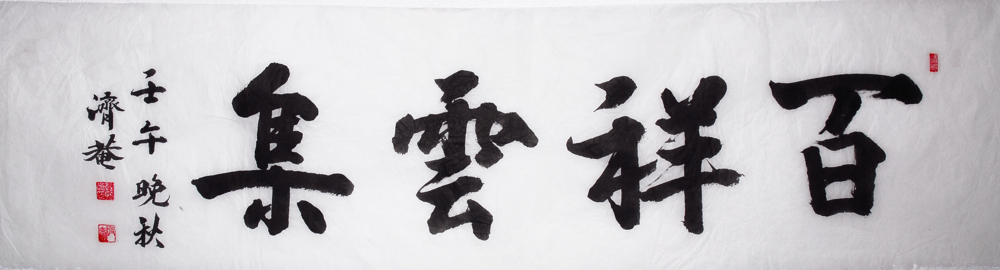 百祥雲集
壬午晚秋
濟菴